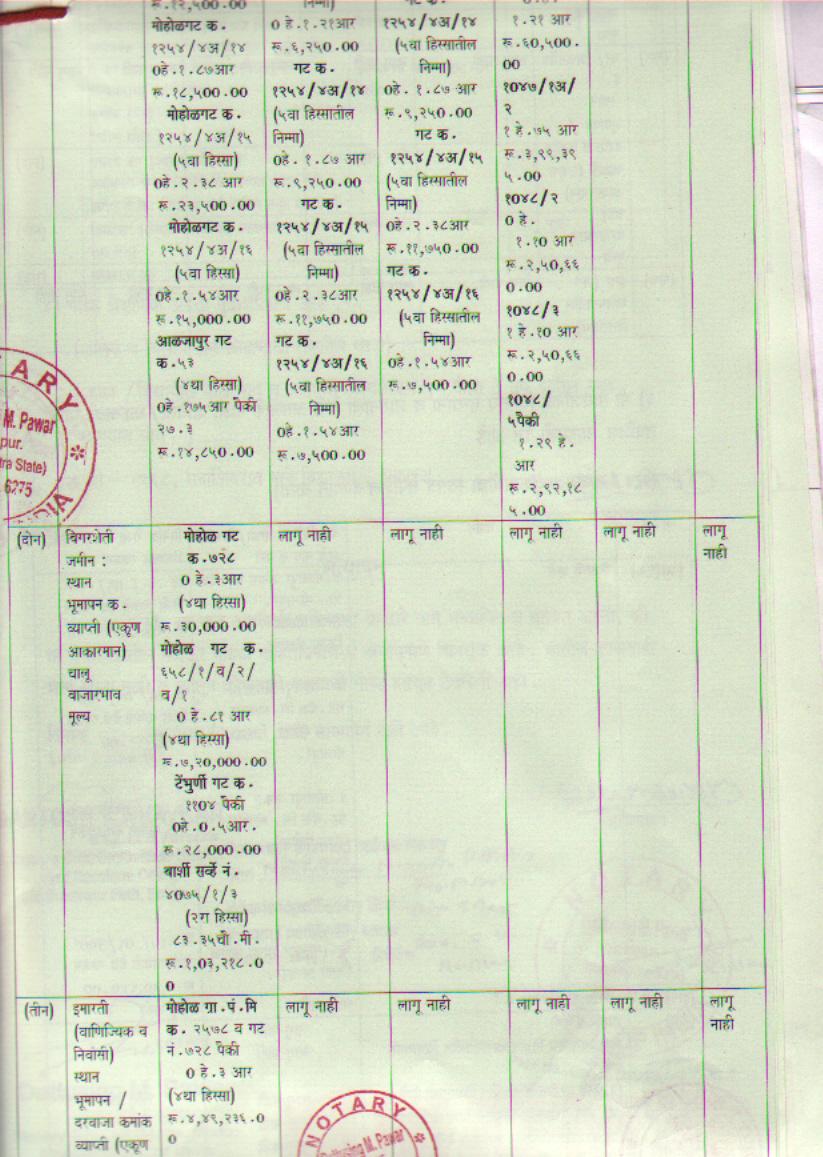 रू.१२,५००.००
मोहोळगट क.
१२५४/४अ/१४
0हे.१.८७आर
रू.१८,५००.००
मोहोळगट क.
१२५४/४अ/१५
(५वा हिस्सा)
0हे.२.३८ आर
रू.२३,५००.००
मोहोळगट क.
१२५४/४अ/१६
(५वा हिस्सा)
0हे.१.५४आर
रू.१५,०००.००
आळजापुर गट
क.५३
(४था हिस्सा)
0हे.१७५आर पैकी
२७.३
रू.१४,८५०.००
निम्मा)
0 हे.१.२१आर
रू.६,२५०.००
गट क.
१२५४/४अ/१४
(५वा हिस्सातील
निम्मा)
0हे.१.८७ आर
रू.९,२५०.००
गट क.
१२५४/४अ/१५
(५वा हिस्सातील
निम्मा)
0हे.२.३८आर
रू.११,७५०.००
गट क.
१२५४/४अ/१६
(५वा हिस्सातील
निम्मा)
0हे.१.५४आर
रू.७,५००.००
गट क.
१२५४/४अ/१४
(५वा हिस्सातील
निम्मा)
0हे.१.८७ आर
रू.९,२५०.००
गट क.
१२५४/४अ/१५
(५वा हिस्सातील
निम्मा)
0हे.२.३८आर
रू.११,७५०.००
गट क.
१२५४/४अ/१६
(५वा हिस्सातील
निम्मा)
0हे.१.५४आर
रू.७,५००.००
१.२१ आर
रू.६०,५००.
००
१०४७/१अ/
२
१ हे.७५ आर
रू.३,९९,३९
५.००
१०४८/२
0 हे.
१.१० आर
रू.२,५०,६६
०.००
१०४८/३
१ हे.१० आर
रू.२,५०,६६
०.००
१०४८/
५पैकी
१.२९ हे.
आर
रू.२,९२,१८
५.००
ARY
M. Pawar
pur.
tra State)
6275
DIA
(दोन)
बिगरशेती
जमीन :
स्थान
भूमापन क.
व्याप्ती (एकूण
आकारमान)
चालू
बाजारभाव
मूल्य
मोहोळ गट
क.७२८
0 हे.३आर
(४था हिस्सा)
रू.३०,०००.००
मोहोळ गट क.
६५८/१/ब/२/
ब/१
0 हे.८१ आर
(४था हिस्सा)
रू.७,२०,०००.००
टेंभुर्णी गट क.
११०४ पैकी
0हे.०.५आर.
रू.२८,०००.००
बार्शी सर्व्हे नं.
४०७५/१/३
(२रा हिस्सा)
८३.३५चौ.मी.
रू.१,०३,२१८.०
०
लागू नाही
लागू नाही
लागू नाही
लागू नाही
लागू
नाही
(तीन)
इमारती
(वाणिज्यिक व
निवासी)
स्थान
भूमापन /
दरवाजा कमांक
व्याप्ती (एकूण
मोहोळ ग्रा.पं.मि
क. २५७८ व गट
नं.७२८ पैकी
0 हे.३ आर
(४था हिस्सा)
रू.४,४९,२३६.०
०
लागू नाही
लागू नाही
लागू नाही
लागू नाही
लागू
नाही
NOTARY
M. Pawar